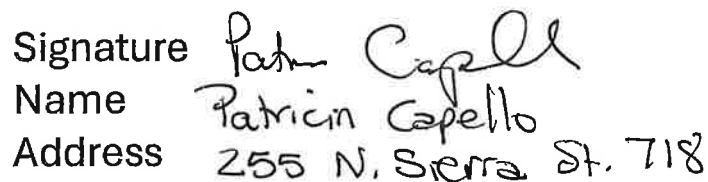 Signature Patr Capell
Name Patricia Capello
Address 255 N. Sierra St. 718